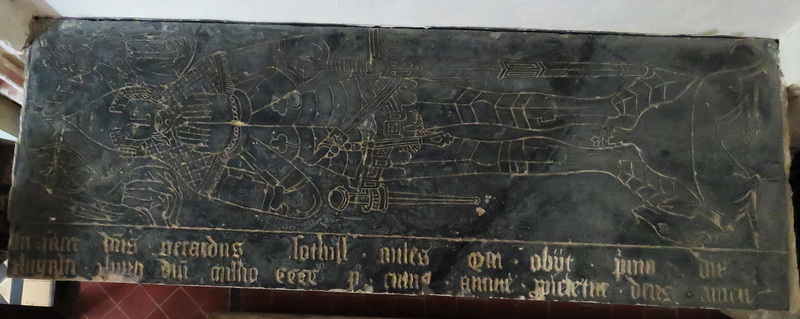 jacet dns gerardus sothill miles Qui obijt primo die
Augusti Anno dni millio cccc p cuius anime propicietur deus amen